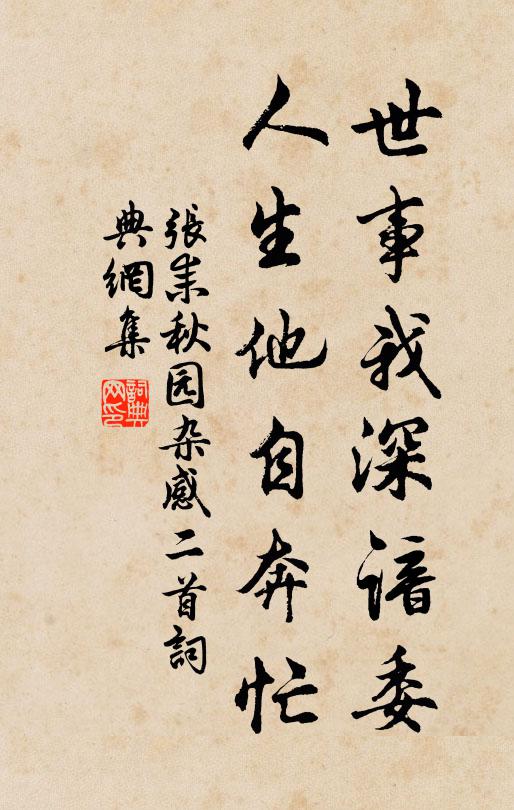 世事我深谙委
人生他自奔忙
張耒秋园杂感二首詞
典網集
詞典网印